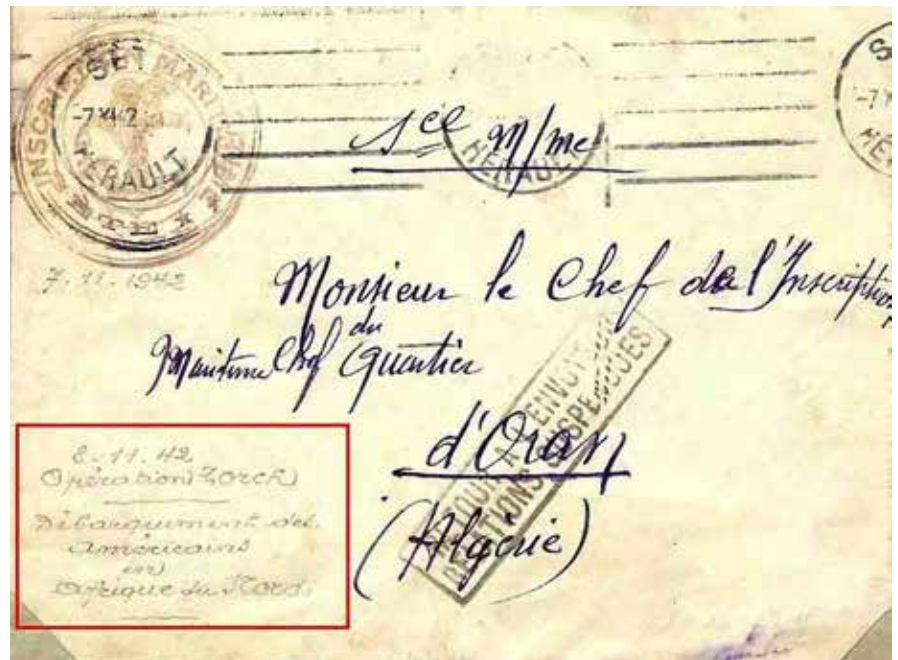 SETE
-7 XI 42
HERAULT
INSCRIPTION MARITIME
7.11.1942
Sce M/me
HERAULT
-7
HE
Monsieur le Chef de l'Inscription
Maritime Chef du Quartier
d'Oran
(Algérie)
RETOUR A L'ENVOYEUR
RELATIONS SUSPENDUES
8.11.42
Opération Torch
Débarquement des
américains
en
Afrique du Nord